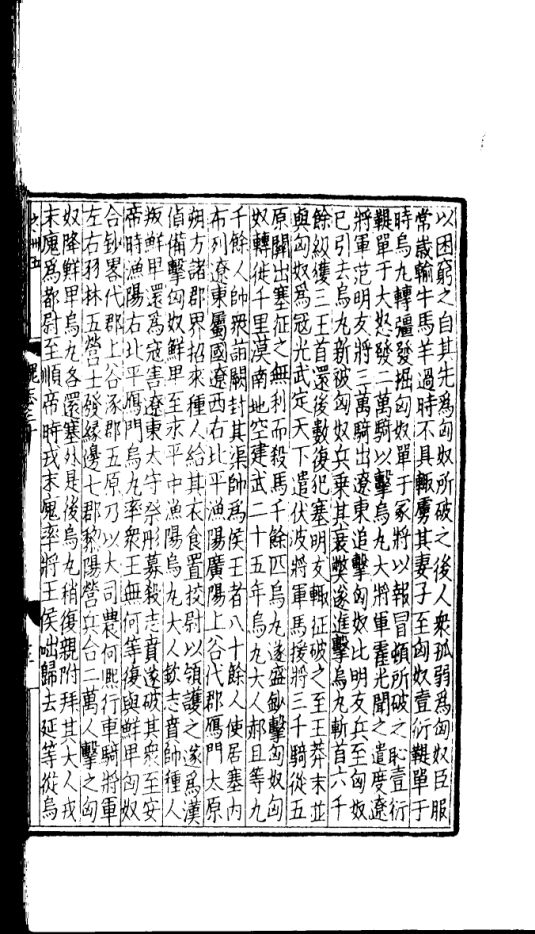 以困窮之自其先爲匈奴所破之後人衆孤弱爲匈奴臣服
常歳輸牛馬羊過時不具輙虜其妻子至匈奴壹衍鞮單于
時烏九轉彊發掘匈奴單于冢將以報冒頓所破之恥壹衍
鞮單于大怒發二萬騎以擊烏九大將軍霍光聞之遣度遼
將軍范明友將三萬騎出遼東追擊匈奴比明友兵至匈奴
已引去烏九新破匈奴兵乗其衰弊遂進擊烏九斬首六千
餘級獲三王首還後數復犯塞明友輙征破之至王莽末並
與匈奴爲冦光武定天下遣伏波將軍馬援將三千騎從五
原關出塞征之無利而殺馬千餘匹烏九遂盛鈔擊匈奴匈
奴轉徙千里漠南地空建武二十五年烏九大人郝旦等九
千餘人帥衆詣闕封其渠帥爲侯王者八十餘人使居塞内
布列遼東屬國遼西右北平漁陽廣陽上谷代郡鴈門太原
朔方諸郡界招來種人給其衣食置挍尉以領護之遂爲漢
偵備擊匈奴鮮卑至永平中漁陽烏九大人欽志賁帥種人
叛鮮卑還爲冦害遼東太守祭肜募殺志賁遂破其衆至安
帝時漁陽右北平鴈門烏九率衆王無何等復與鮮卑匈奴
合鈔畧代郡上谷涿郡五原乃以大司農何熈行車騎將軍
左右羽林五營士發縁邊七郡黎陽營兵合二萬人擊之匈
奴降鮮卑烏九各還塞外是後烏九稍復親附拜其大人戎
末廆爲都尉至順帝時戎末廆率將王侯咄歸去延等從烏